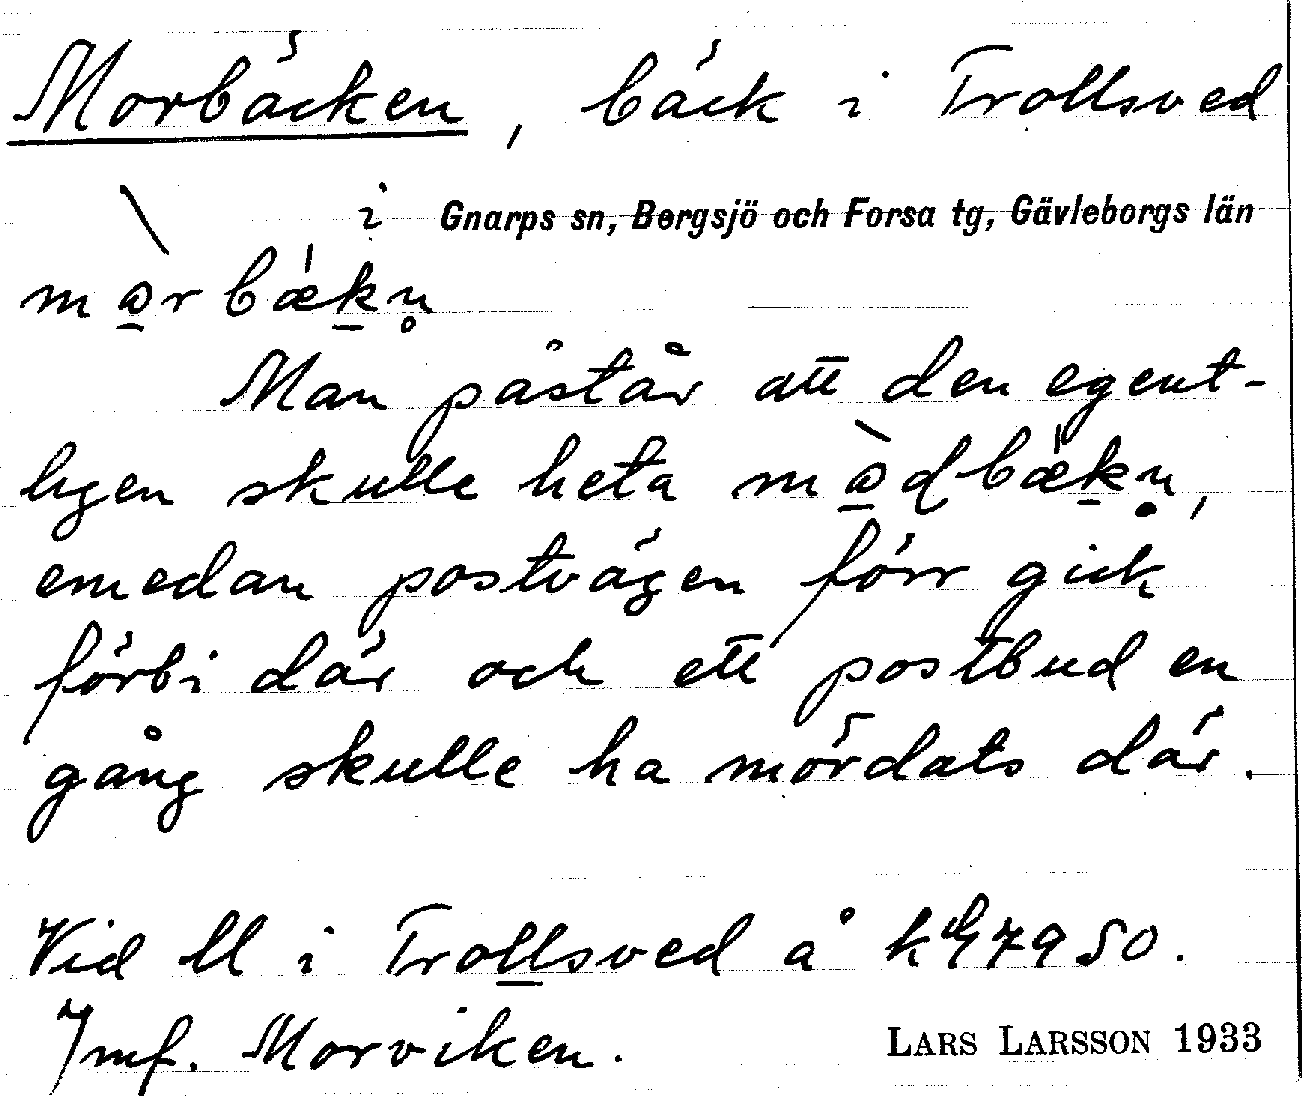 Morbäcken, bäck i Trollsved
i Gnarps sn, Bergsjö och Forsa tg, Gävleborgs län
Man påstår att den egent-
ligen skulle heta
emedan postvägen förr gick
förbi där och ett postbud en
gång skulle ha mördats där.
Vid ll i Trollsved å 7950.
Jmf. Morviken.
LARS LARSSON 1933